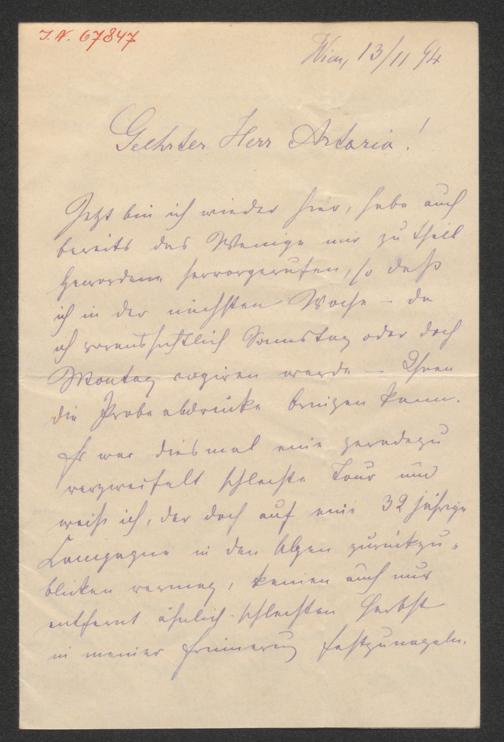 I.N. 67847
Wien, 13/11 94
Geehrter Herr Artaria!
Jetzt bin ich wieder hier, habe auch
bereits das Wenige mir zu Theil
Gewordene hervorgerufen, so daß
ich in der nächsten Woche – da
ich voraussichtlich Samstag oder doch
Montag copiren werde – Ihnen
die Probeabdrücke bringen kann.
Es war diesmal eine geradezu
verzweifelt schlechte Tour und
weiß ich, der doch auf eine 32 jährige
Campagne in den Alpen zurückzu-
blicken vermag, keinen auch nur
entfernt ähnlich schlechten Herbst
in meiner Erinnerung festzunageln.